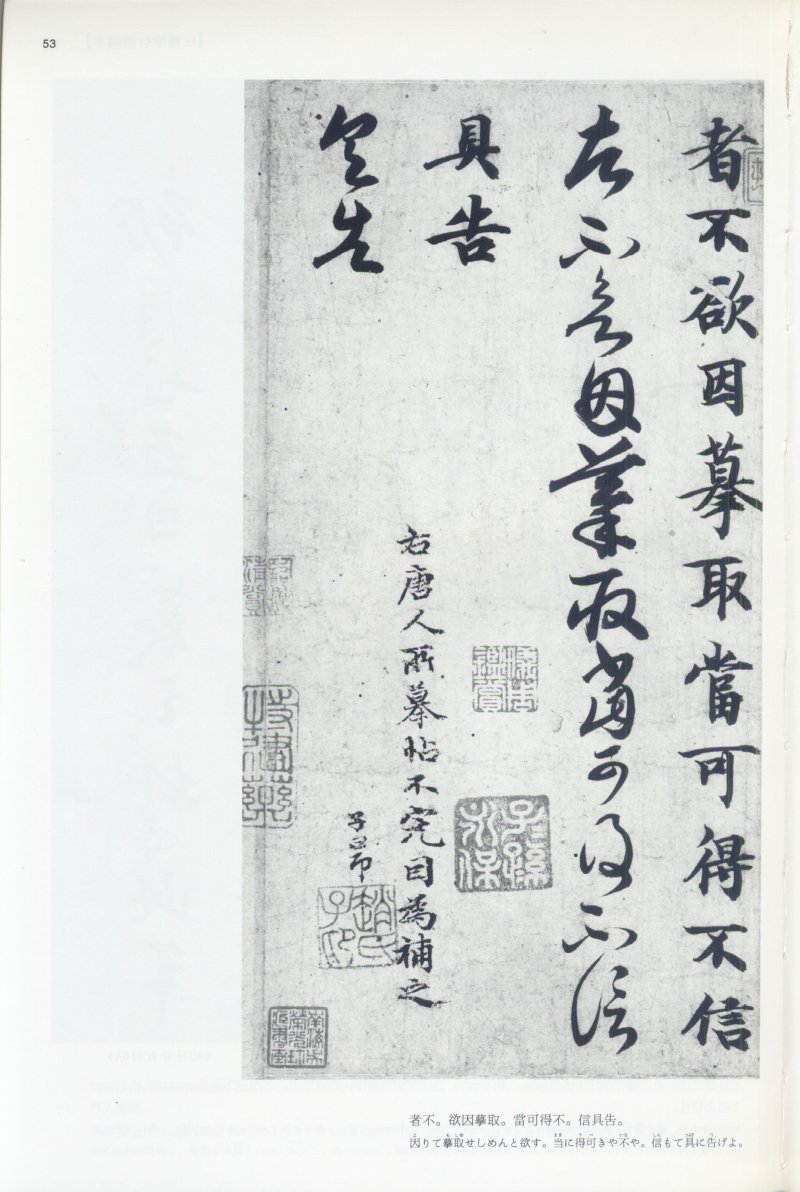 53
者不欲因摹取當可得不信
者不欲因摹取當可得不信
具告
具告
右唐人所摹帖不完因為補之
子昂
子孫永保
趙氏子昂
者不。欲因摹取。當可得不。信具告。
因りて摹取せしめんと欲す。当に得可きや不や。信もて具に告げよ。